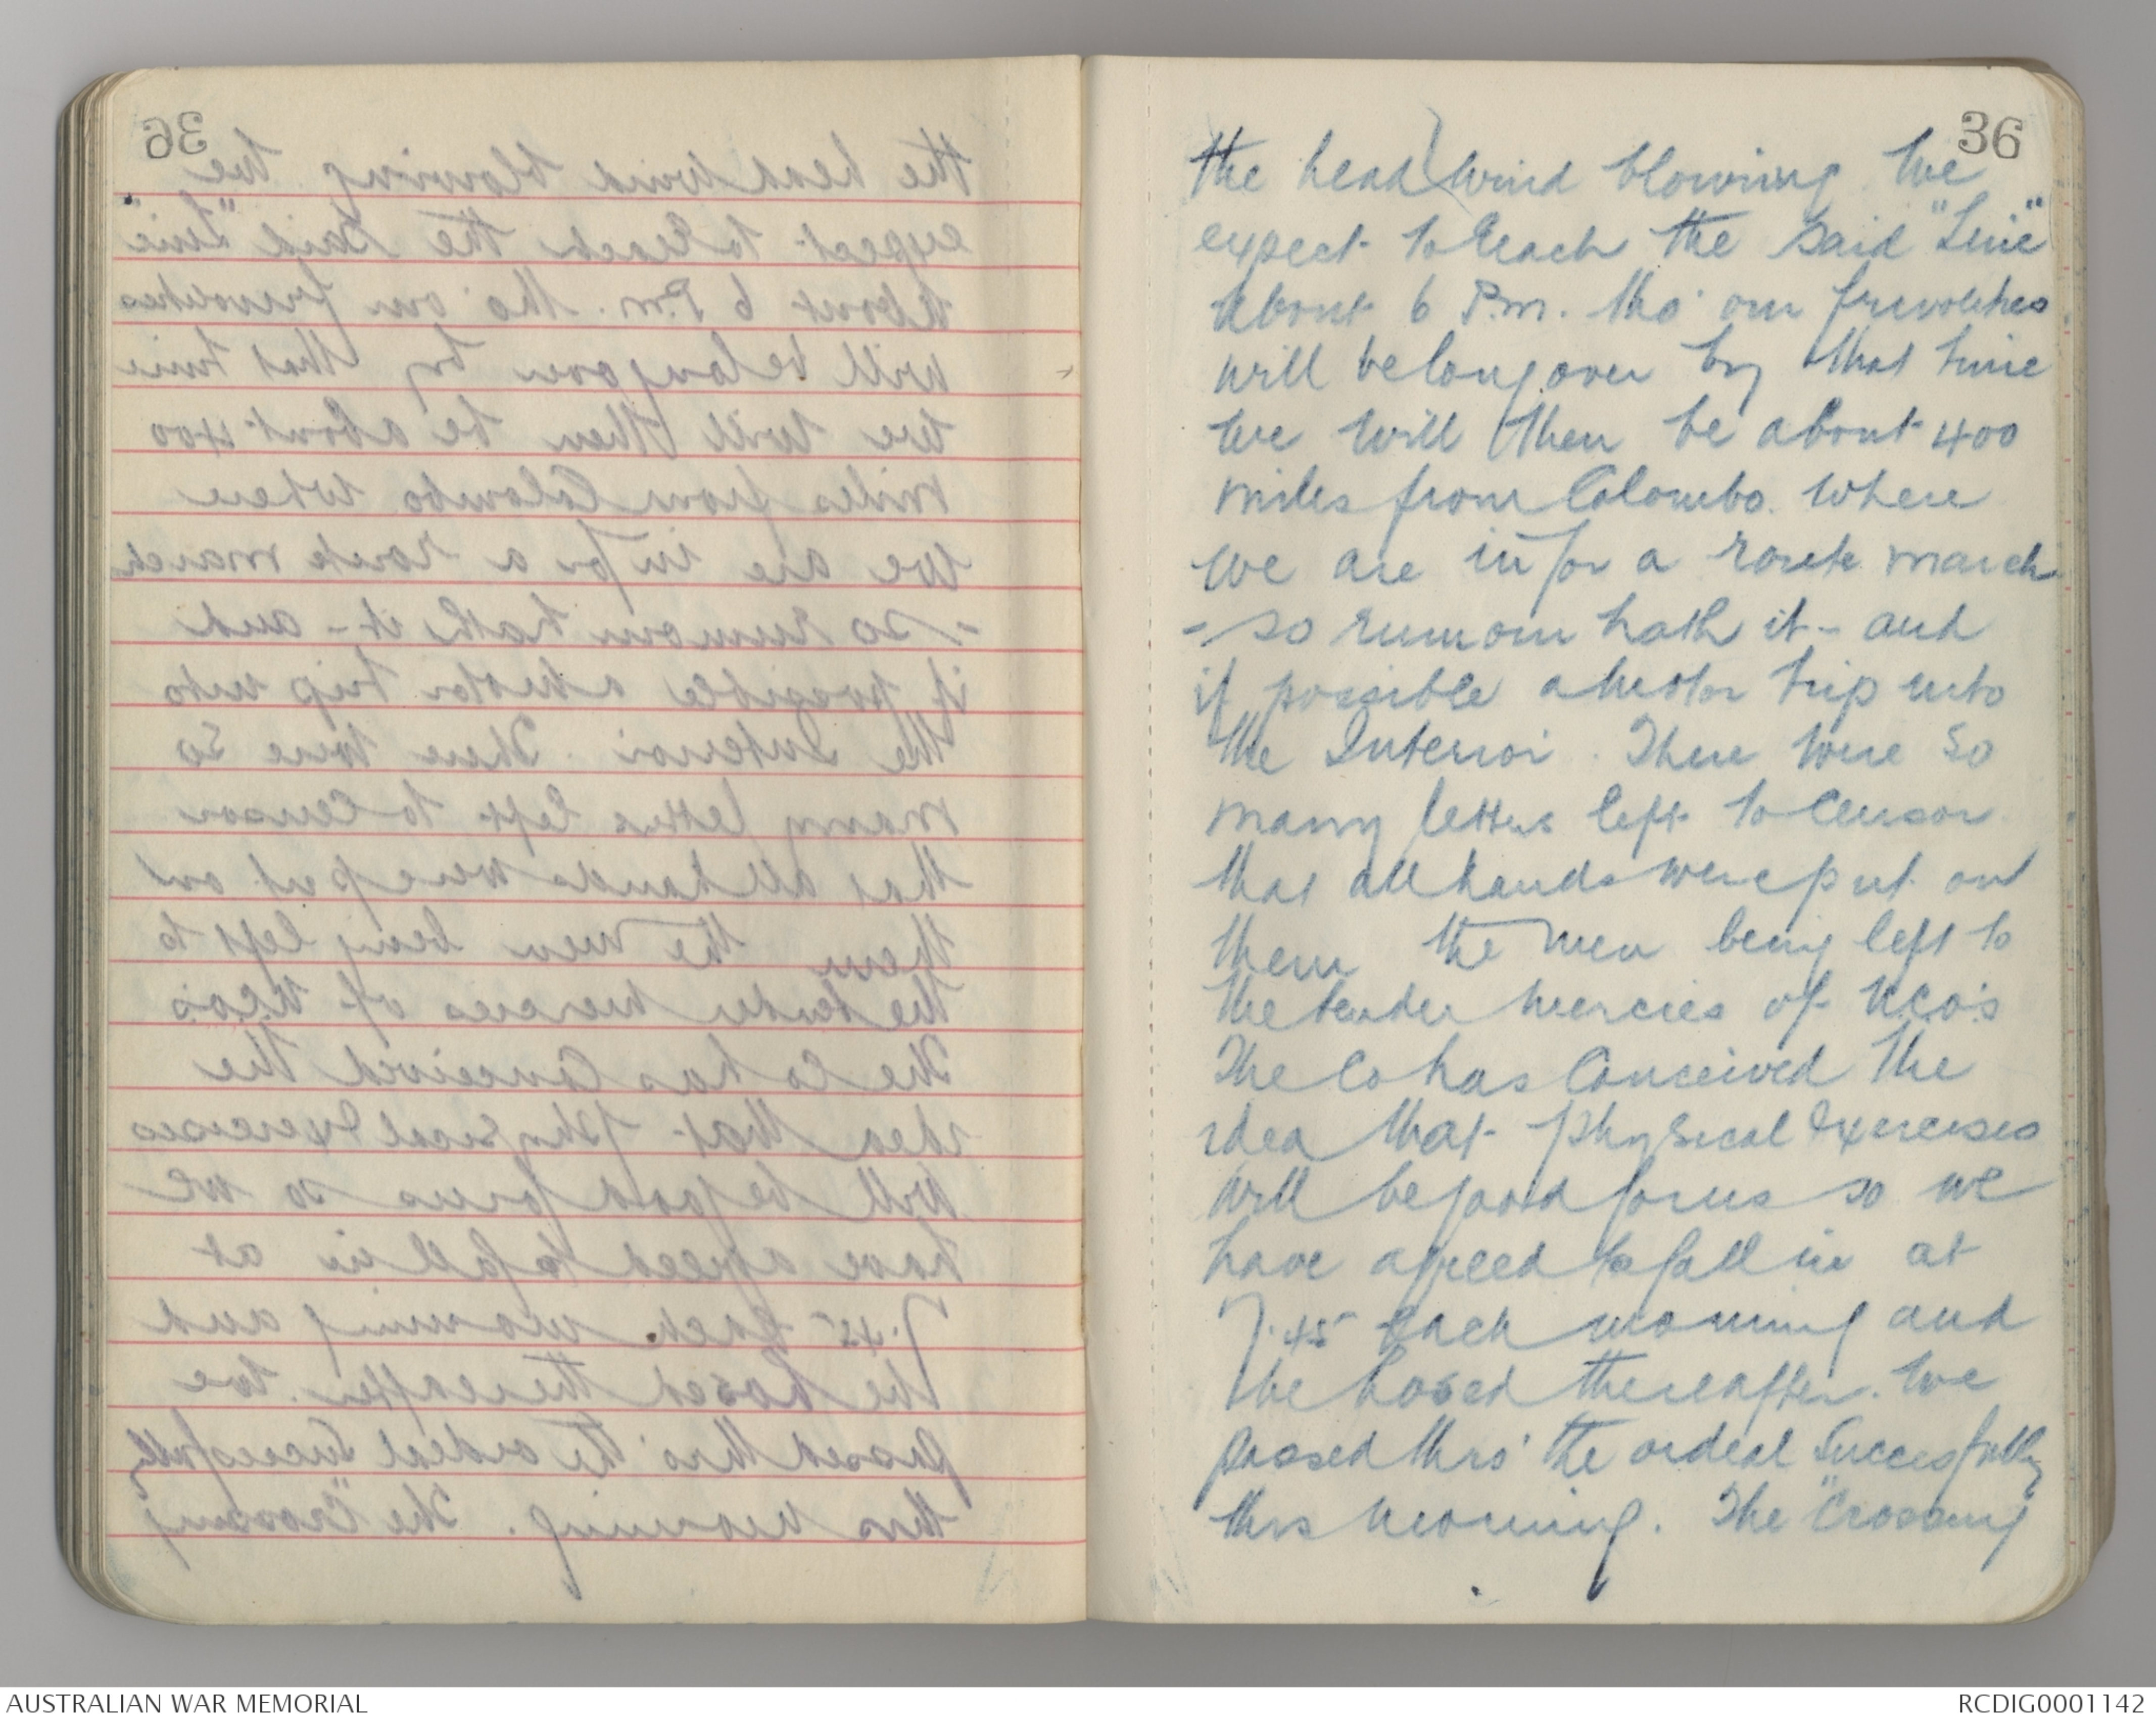 36
the head wind blowing. We
expect to reach the said "Line"
about 6 P.m. tho' our frivolities
will be long over by that time
We will then be about 400
miles from Colombo. Where
we are in for a route march
- so rumour hath it - and
if possible a motor trip into
the Interior. There were so
many letters left to Censor
that all hands were put on
them the men being left to
the tender mercies of N.C.O's
The Co has Conceived the
idea that physical Exercises
will be good for us so we
have agreed to fall in at
7.45 Each morning and
be hosed thereafter. We
passed thro' the ordeal Successfully
this morning. The "Crossing
AUSTRALIAN WAR MEMORIAL
RCDIG0001142